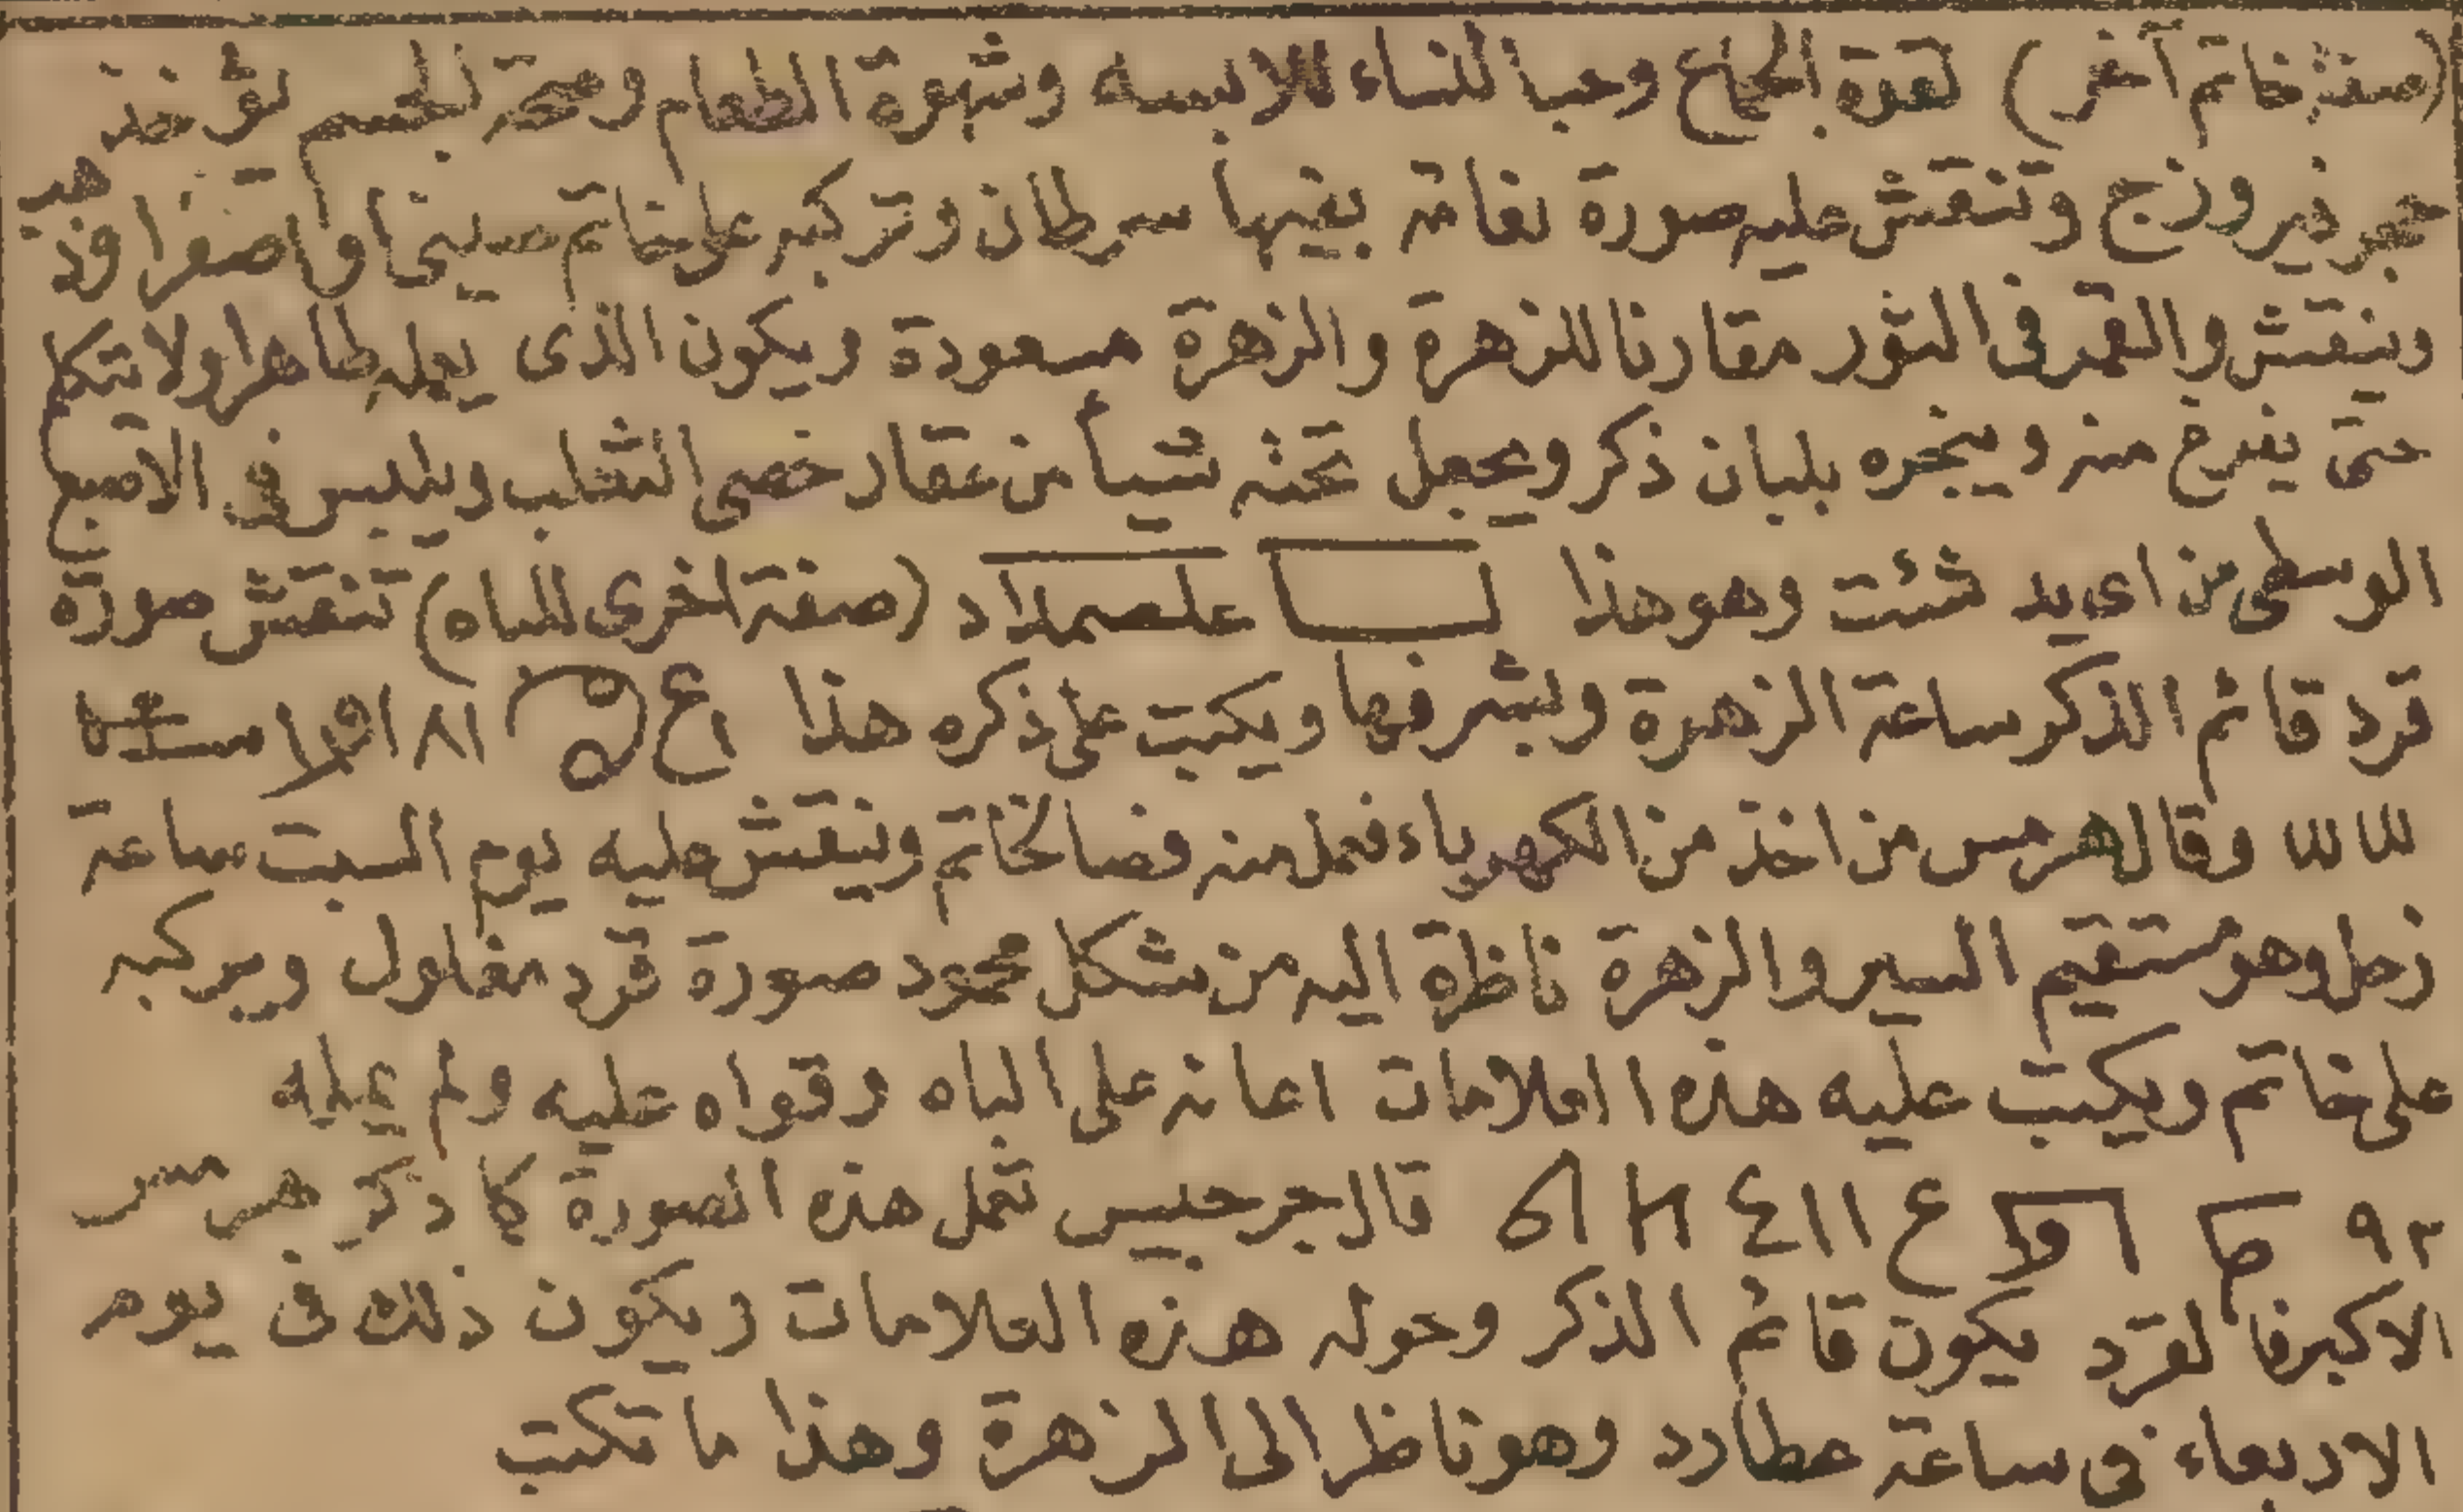 (صفة خاتم آخر) لقوة الجماع وحبا للنساء للابسه وشهوة الطعام وصحة الجسم تؤخذ
حجر فيروزج وتنقش عليه صورة نعامة بفيها سرطان وتركبه على خاتم صينى او اصفر او ذهب
وينقش والقمر فى الثور مقارنا للزهرة والزهرة مسعودة ويكون الذى يعمله طاهرا ولا يتكلم
حتى يفرغ منه ويبخره بلبان ذكر ويجعل تحته شيأ من عقار خصى الثعلب ويلبس فى الاصبع
الوسطى من اى يد شئت وهو هذا (صفة اخرى للباه) تنقش صورة
قرد قائم الذكر ساعة الزهرة وبشرفها ويكتب على ذكره هذا
وقال هرمس من اخذ من الكهرباء فعمل منه فصا لخاتم وينقش عليه يوم السبت ساعة
زحل وهو مستقيم السير والزهرة ناظرة اليه من شكل محمود صورة قرد مغلول ويركبه
على خاتم ويكتب عليه هذه العلامات اعانه على الباه وقواه عليه ولم يمله
٩٢ ع ١١٤ قال جرجيس تعمل هذه الصورة كما ذكر هرمس
الاكبر فالقرد يكون قائم الذكر وحوله هذه العلامات ويكون ذلك فى يوم
الاربعاء فى ساعة عطارد وهو ناظر الى الزهرة وهذا ما تكتب